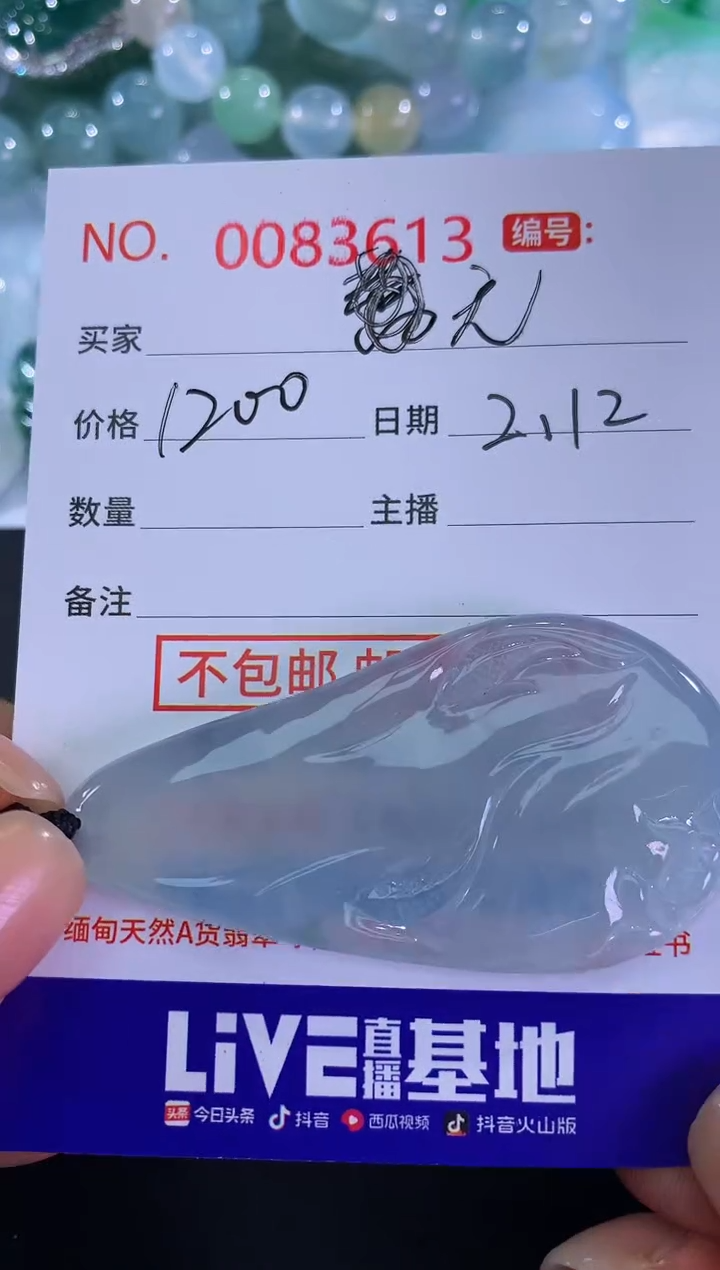 NO. 0083613 编号:
买家 元
价格 1200 日期 2.12
数量 主播
备注
不包邮
缅甸天然A货翡翠 书
LiVE直播基地
头条 今日头条 抖音 西瓜视频 抖音火山版